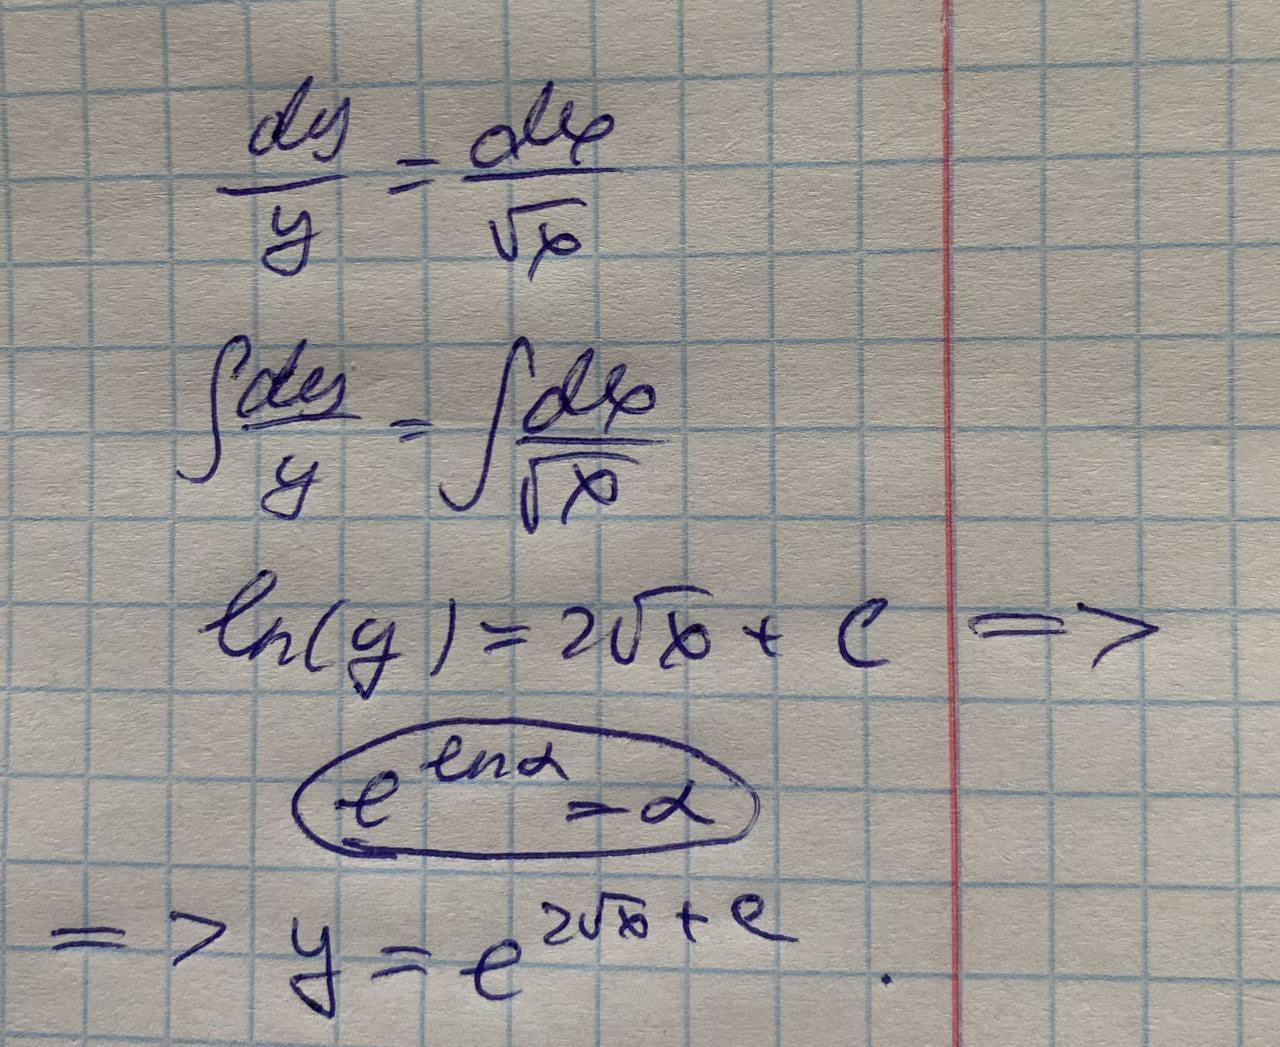 dy/y = dx/√x
∫dy/y = ∫dx/√x
ln(y) = 2√x + c =>
e^(ln α) = α
=> y = e^(2√x + c).